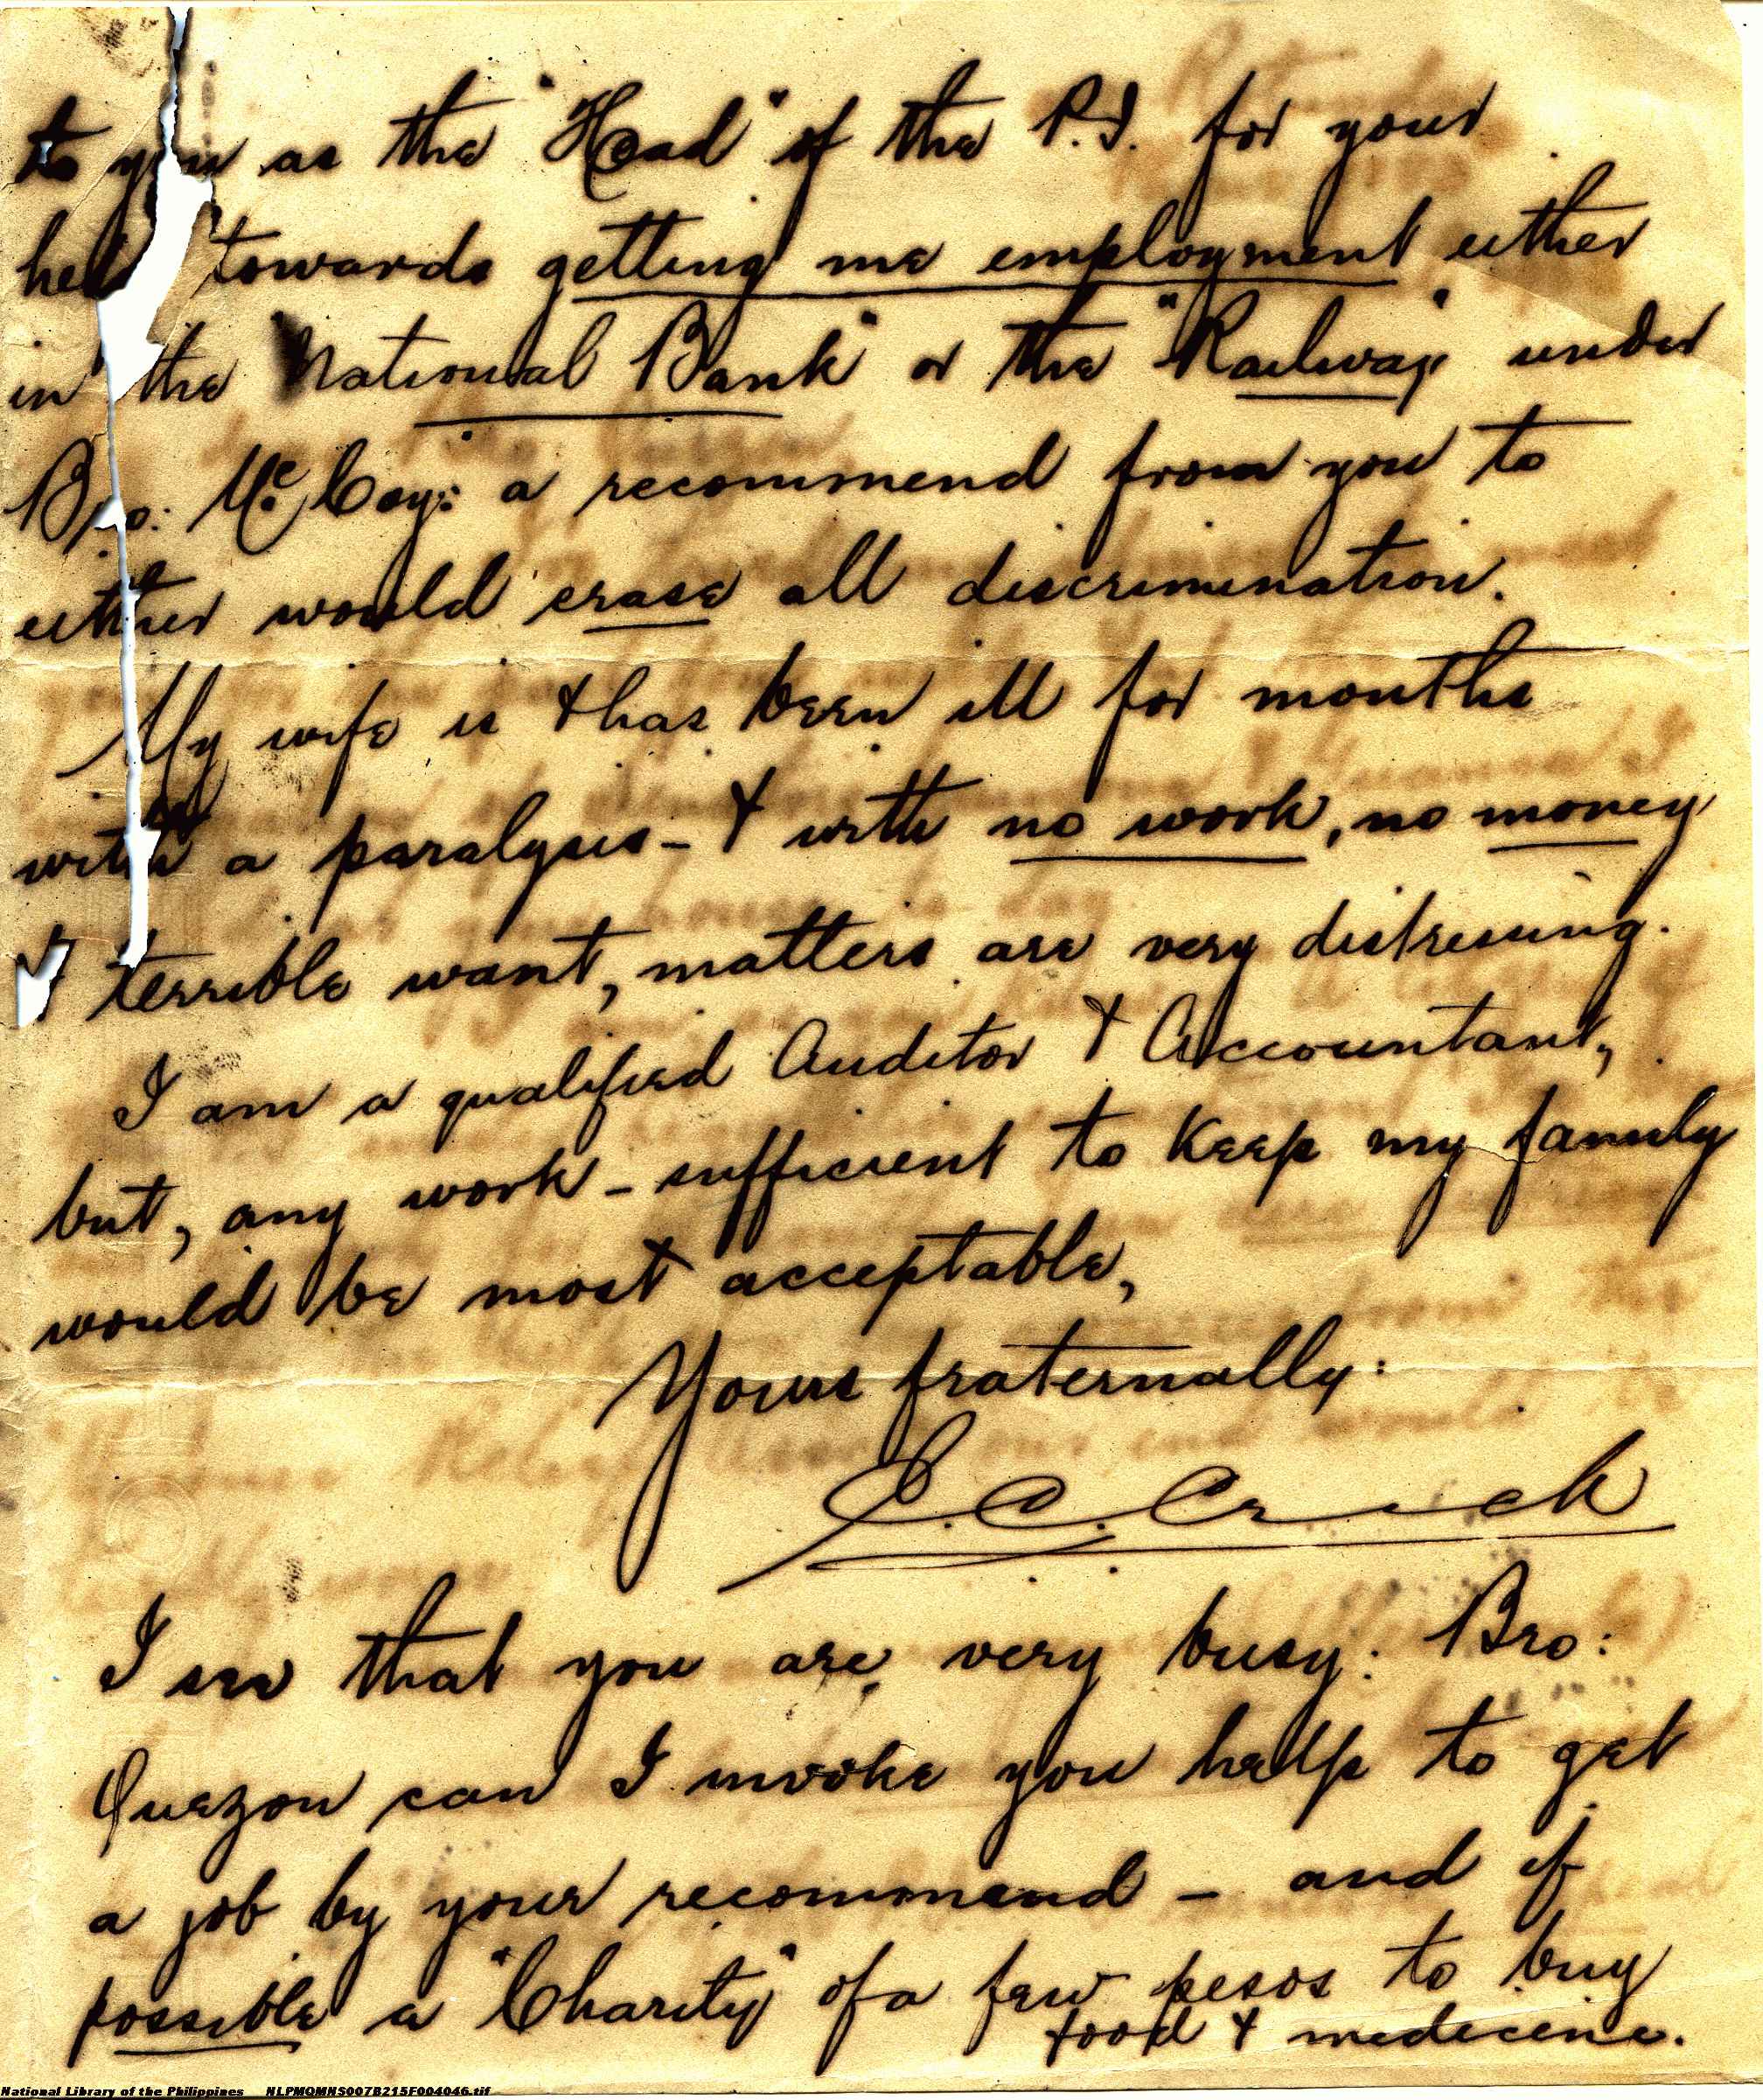 to you as the "Head" of the P.I. for your
help towards getting me employment either
in the "National Bank" or the "Railway" under
Bro: McCoy: a recommend from you to
either would erase all discrimination.
My wife is & has been ill for months
with a paralysis - & with no work, no money
& terrible want, matters are very distressing.
I am a qualified Auditor & Accountant,
but, any work - sufficient to keep my family
would be most acceptable,
Yours fraternally:
C. Crick
I see that you are very busy: Bro:
Quezon can I invoke you help to get
a job by your recommend - and if
possible a "Charity" of a few pesos to buy
food & medicine.
National Library of the Philippines NLPMQMNS007B215F004046.tif